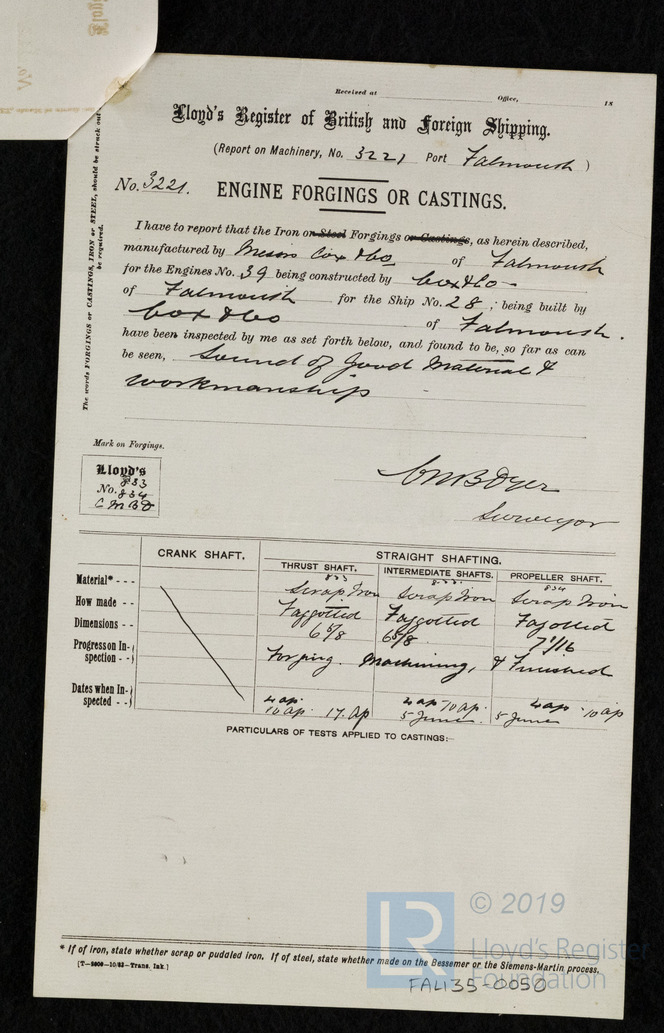 Received at Office, 18
Lloyd's Register of British and Foreign Shipping.
(Report on Machinery, No. 3221 Port Falmouth )
No. 3221. ENGINE FORGINGS OR CASTINGS.
The words FORGINGS or CASTINGS, IRON or STEEL, should be struck out
be required.
I have to report that the Iron or Steel Forgings or Castings, as herein described,
manufactured by Messrs Cox & Co of Falmouth
for the Engines No. 39 being constructed by Cox & Co -
of Falmouth for the Ship No. 28, being built by
Cox & Co of Falmouth.
have been inspected by me as set forth below, and found to be, so far as can
be seen, Sound of Good Material &
workmanship
Mark on Forgings.
Lloyd's
No. 833
834
C M B D
C M B Dyer
Surveyor
CRANK SHAFT. STRAIGHT SHAFTING.
THRUST SHAFT. INTERMEDIATE SHAFTS. PROPELLER SHAFT.
833 834
Material* - - - Scrap Iron Scrap Iron Scrap Iron
How made - - Faggotted Faggotted Fagotted
Dimensions - - 6 5/8 6 5/8 7 1/16
Progress on In-
spection - - Forging. Machining, & Finished
Dates when In-
spected - - 4 ap. 4 ap 10 ap. 4 ap. 10 ap
10 ap. 17. ap 5 June. 5 June
PARTICULARS OF TESTS APPLIED TO CASTINGS:-
* If of iron, state whether scrap or puddled iron. If of steel, state whether made on the Bessemer or the Siemens-Martin process.
[T-—10/83—Trans. Ink.]
LR © 2019
Lloyd's Register
Foundation
FAL135-0050